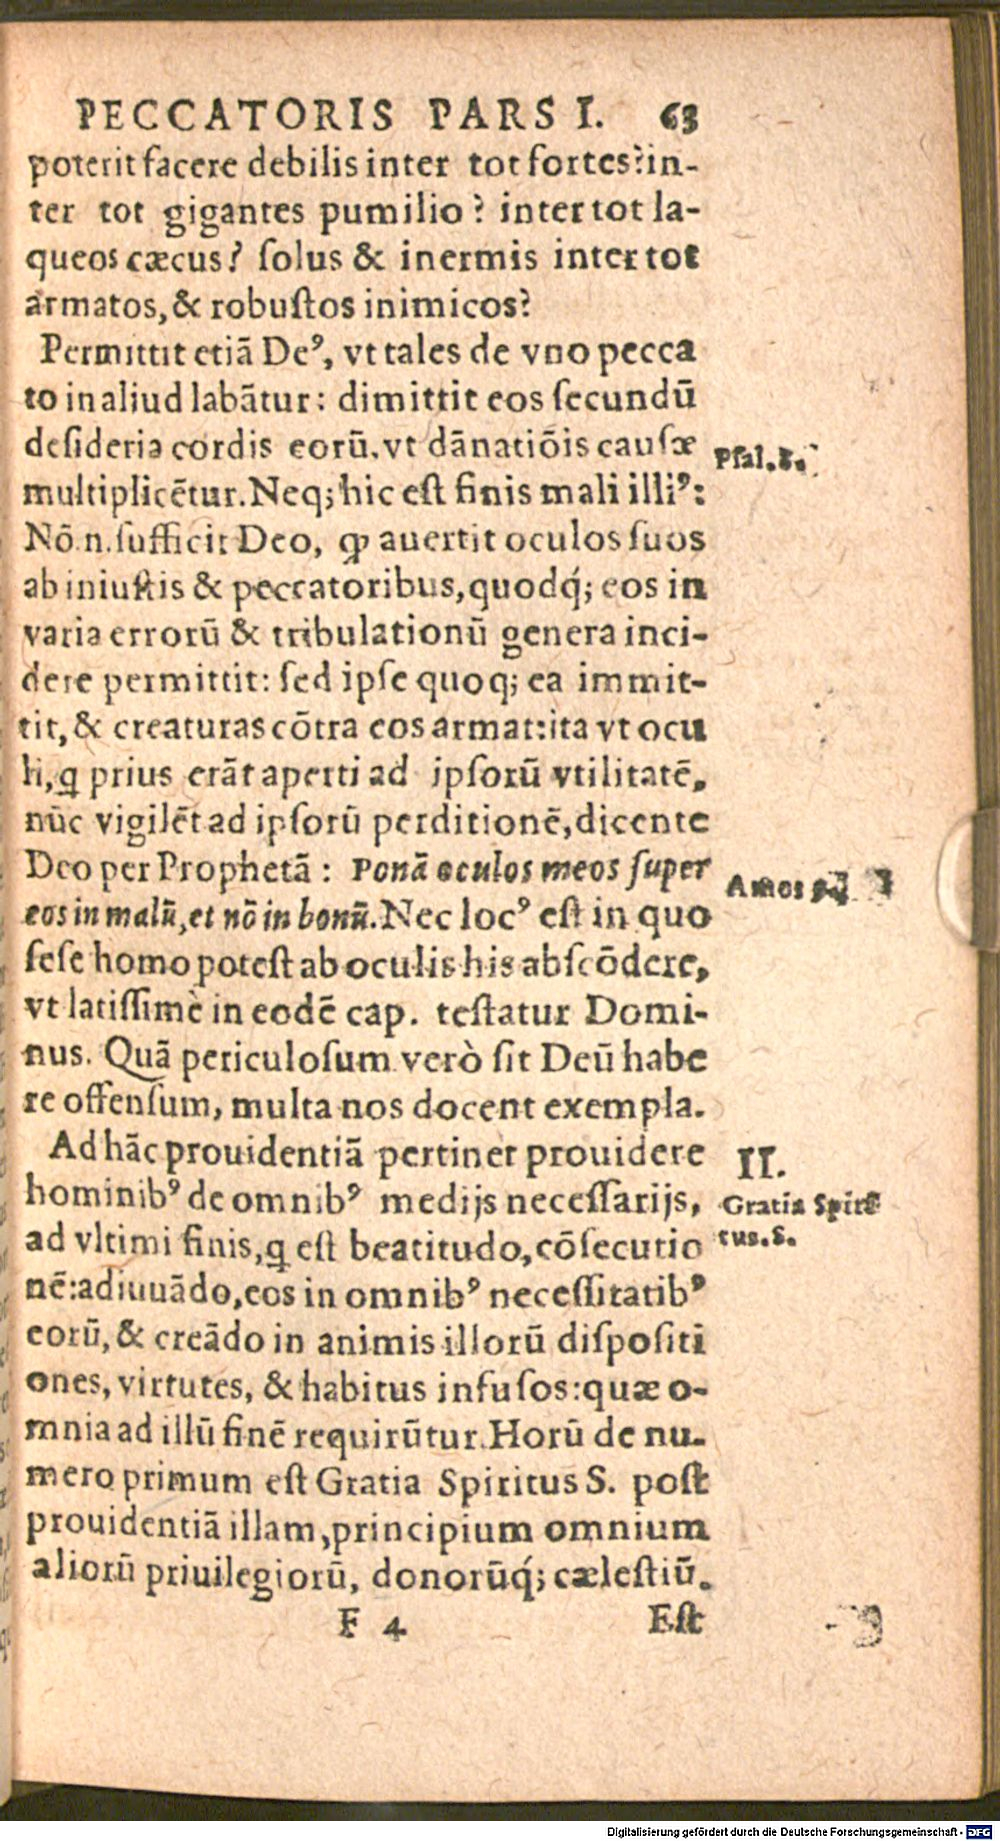 PECCATORIS PARS I. 63
poterit facere debilis inter tot fortes? in-
ter tot gigantes pumilio? inter tot la-
queos cæcus? solus & inermis inter tot
armatos, & robustos inimicos?
Permittit etiã Deꝰ, vt tales de vno pecca
to in aliud labãtur: dimittit eos secundũ
desideria cordis eorũ, vt dãnatiõis causæ
Psal. 8.
multiplicẽtur. Neq; hic est finis mali illiꝰ:
Nõ .n. sufficit Deo, ꝙ auertit oculos suos
ab iniustis & peccatoribus, quodq́; eos in
varia errorũ & tribulationũ genera inci-
dere permittit: sed ipse quoq; ea immit-
tit, & creaturas cõtra eos armat: ita vt ocu
li, q̃ prius erãt aperti ad ipsorũ vtilitatẽ,
nũc vigilẽt ad ipsorũ perditionẽ, dicente
Deo per Prophetã: Ponã oculos meos super
Amos 9.
eos in malũ, et nõ in bonũ. Nec locꝰ est in quo
sese homo potest ab oculis his abscõdere,
vt latissimè in eodẽ cap. testatur Domi-
nus. Quã periculosum verò sit Deũ habe
re offensum, multa nos docent exempla.
Ad hãc prouidentiã pertinet prouidere
II.
hominibꝰ de omnibꝰ medijs necessarijs,
Gratia Spiri
ad vltimi finis, q̃ est beatitudo, cõsecutio
tus. S.
nẽ: adiuuãdo, eos in omnibꝰ necessitatibꝰ
eorũ, & creãdo in animis illorũ dispositi
ones, virtutes, & habitus infusos: quæ o-
mnia ad illũ finẽ requirũtur. Horũ de nu-
mero primum est Gratia Spiritus S. post
prouidentiã illam, principium omnium
aliorũ priuilegiorũ, donorũq́; cælestiũ.
F 4 Est
Digitalisierung gefördert durch die Deutsche Forschungsgemeinschaft - DFG